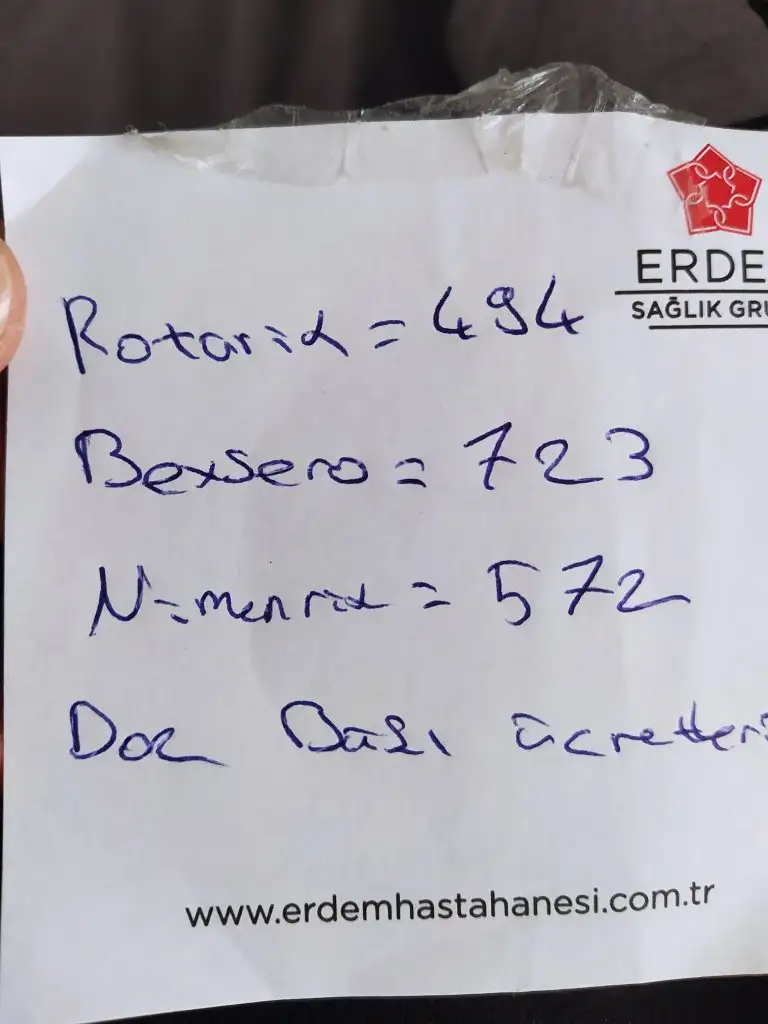 ERDE
SAĞLIK GRU
Rotarix = 494
Bexsero = 723
Nimenrix = 572
Doz Başı ücretleri
www.erdemhastahanesi.com.tr